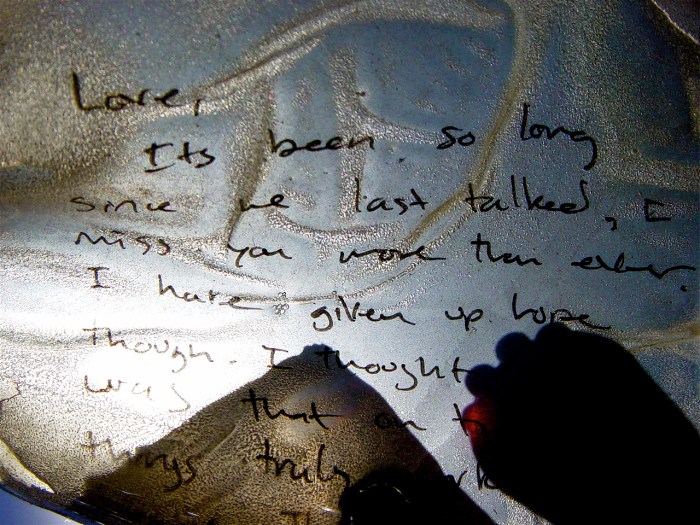 Love,
Its been so long
since we last talked, I
miss you more than ever.
I have given up hope
Though. I thought
was that on t
things truly
Th